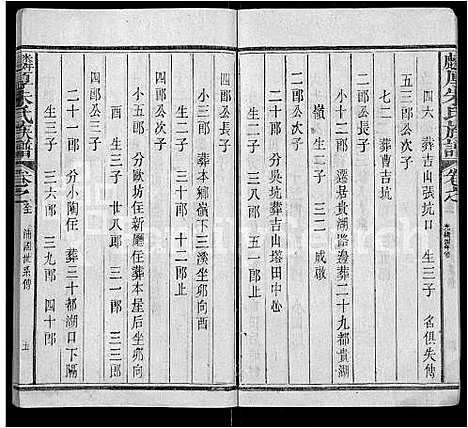 朱氏族譜
四六 葬吉山張坑口 生三子 名俱失傳
五三郎公次子
七二 葬曹吉坑
四郎公次子
小十二郎 遷居貴湖路邊葬二十九都貴湖
嶺 生二子 三一 咸敬
二郎公次子
小十四郎 分吳坑住葬吉山塔田中心
生二子 三八郎 五一郎止
四郎公長子
小三郎 葬本鄉嶺下三溪坐邜向酉
生二子 二一郎 二二郎止
四郎公次子
小五郎 分歐坊住新廳住葬本屋后坐邜向
酉 生三子 廿八郎 三一郎 三三郎
四郎公三子
二十一郎 分小陶住 葬三十都湖口下隔
生三子 三六郎 三九郎 四十郎
朱氏族譜
世系傳
五